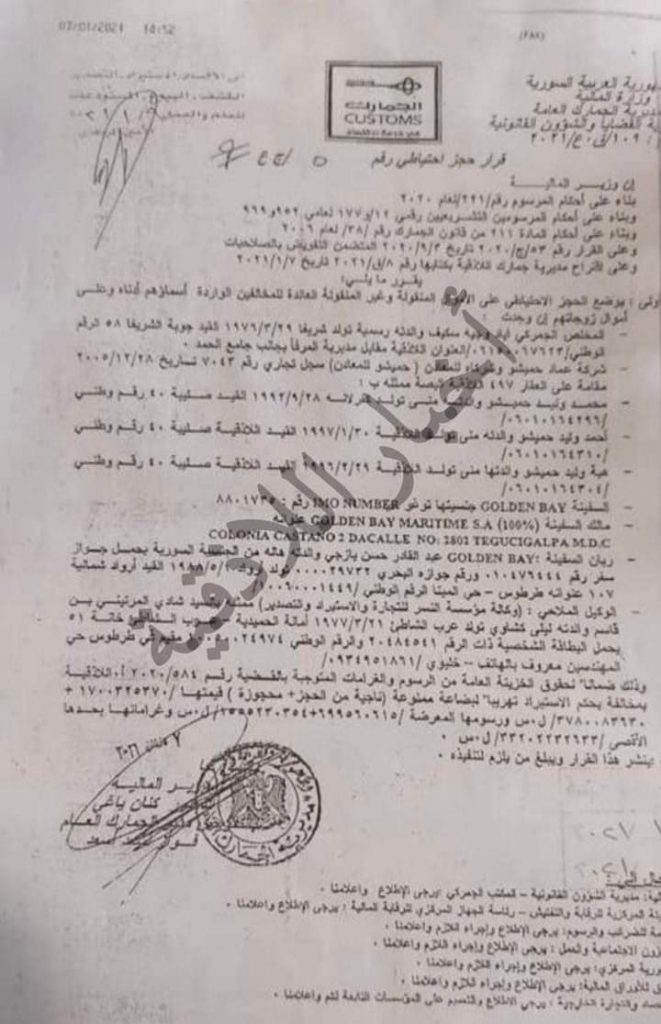 07/01/2021 14:52
الجمهورية العربية السورية
وزارة المالية
مديرية الجمارك العامة
القضايا والشؤون القانونية
الجمارك
CUSTOMS
قرار حجز احتياطي رقم
إن وزير المالية
بناء على أحكام المرسوم رقم /٢٢١/ لعام ٢٠٢٠
وبناء على أحكام المرسومين التشريعيين رقمي ١٢/و١٧٧ لعامي ٩٥٢ و٩٦٩
وبناء على أحكام المادة ٢١١ من قانون الجمارك رقم /٣٨/ لعام ٢٠٠٦
وعلى القرار رقم ٥٣/ج/٢٠٢٠ تاريخ ٢٠٢٠/٩/٣ المتضمن التفويض بالصلاحيات
وعلى اقتراح مديرية جمارك اللاذقية بكتابها رقم ٨/ق/٢٠٢١ تاريخ ٢٠٢١/١/٧
يقرر ما يلي:
بوضع الحجز الاحتياطي على الأموال المنقولة وغير المنقولة العائدة للمخالفين الواردة أسماؤهم أدناه وعلى
أموال زوجاتهم إن وجدت :
- المخلص الجمركي اياد وجيه سكيف والدته رسمية تولد شريفا ١٩٧٦/٣/٢٩ القيد جوبة الشريفا ٥٨ الرقم
العنوان اللاذقية مقابل مديرية المرفأ بجانب جامع الحمد .
- شركة عماد حميشو وشركاه للمعادن ( حميشو للمعادن) سجل تجاري رقم ٧٠٤٣ تاريخ ٢٠٠٥/١٢/٢٨
مقامة على العقار ٤٩٧ اللاذقية البصة ممثله ب :
- محمد وليد حميشو والدته منى تولد ١٩٩٢/٩/٢٨ القيد صليبة ٤٠ رقم وطني
/٠٦٠١٠١٦٤٢٩٦/
- أحمد وليد حميشو والدته منى تولد اللاذقية ١٩٩٧/١/٣٠ القيد اللاذقية صليبة ٤٠ رقم وطني
/٠٦٠١٠١٦٤٣١٠/
- هبة وليد حميشو والدتها منى تولد اللاذقية ١٩٩٦/٢/٢٩ القيد اللاذقية صليبة ٤٠ رقم وطني
/٠٦٠١٠١٦٤٣٠٤/
- السفينة GOLDEN BAY جنسيتها توغو IMO NUMBER رقم : ٨٨٠١٧٣٥
- مالك السفينة GOLDEN BAY MARITIME S.A (100%) عنوانه
COLONIA CASTANO 2 DACALLE NO: 2802 TEGUCIGALPA M.D.C
- ربان السفينة GOLDEN BAY: عبد القادر حسن يازجي والدته هاله من الجنسية السورية يحمل جواز
سفر رقم ٠١٠٤٧٦٤٤٤ ورقم جوازه البحري ٠٠٠٠٢٩٧٣٢ تولد أرواد ١٩٨٨/٥/١ القيد أرواد شمالية
١٠٧ عنوانه طرطوس – حي المينا الرقم
- الوكيل الملاحي : (وكالة مؤسسة النسر للتجارة والاستيراد والتصدير) ممثله بالسيد شادي المرتيني بن
قاسم والدته ليلى كشاوي تولد عرب الشاطئ ١٩٧٧/٣/٢١ أمانة الحميدية عرب الشاطئ خانة ٥١
يحمل البطاقة الشخصية ذات الرقم ٢٠٤٨٤٥٤١ والرقم الوطني مقيم في طرطوس حي
المهندسين معروف بالهاتف – خليوي /٠٩٣٤٩٥١٨٦١/
وذلك ضماناً لحقوق الخزينة العامة من الرسوم والغرامات المتوجبة بالقضية رقم ٢٠٢٠/٥٨٤ أ اللاذقية
بمخالفة بحكم الاستيراد تهريباً لبضاعة ممنوعة (ناجية من الحجز+ محجوزة ) قيمتها /١٧٠٠٣٢٥٣٧٠ +
٣٧٨٠٠٨٣٦٣٠/ ل.س ورسومها المعرضة ل.س وغراماتها بحدها
الأقصى /٣٣٢٠٢٢٣٢٦٣٣/ ل.س .
ينشر هذا القرار ويبلغ من يلزم لتنفيذه .
وزير المالية
كنان ياغي
مدير الجمارك العام
فواز أسعد
مديرية الشؤون القانونية – المكتب الجمركي يرجى الإطلاع واعلامنا .
المركزية للرقابة والتفتيش – رئاسة الجهاز المركزي للرقابة المالية : يرجى الإطلاع واعلامنا .
للضرائب والرسوم: يرجى الإطلاع وإجراء اللازم واعلامنا .
الشؤون الاجتماعية والعمل : يرجى الإطلاع وإجراء اللازم واعلامنا .
المركزي: يرجى الإطلاع وإجراء اللازم واعلامنا .
للأوراق المالية: يرجى الإطلاع وإجراء اللازم واعلامنا .
والتجارة الخارجية : يرجى الاطلاع والتعميم على المؤسسات التابعة لكم واعلامنا .
أخبار اللاذقية